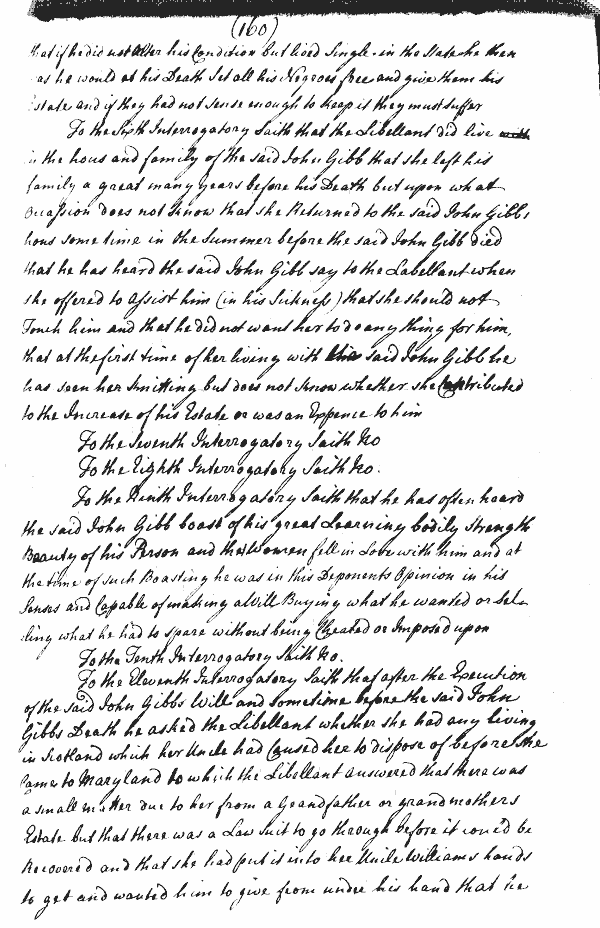 (160)
that if he did not Alter his Condition but lived Single in the State he then
was he would at his Death Set all his Negroes free and give them his
Estate and if they had not sense enough to keep it they must suffer
To the Sixth Interrogatory Saith that the Libellant did live
in the hous and family of the said John Gibb that she left his
family a great many years before his Death but upon what
Occassion does not know that she Returned to the said John Gibbs
hous some time in the Summer before the said John Gibb died
that he has heard the said John Gibb say to the Labellant when
she offered to assist him (in his Sickness) that she should not
Touch him and that he did not want her to do any thing for him,
that at the first time of her living with said John Gibb he
has seen her knitting but does not know whether she Contributed
to the Increase of his Estate or was an Expence to him
To the Seventh Interrogatory Saith No
To the Eighth Interrogatory Saith No.
To the Ninth Interrogatory Saith that he has often heard
the said John Gibb boast of his great Learning bodily strength
Beauty of his Person and that Women fell in Love with him and at
the time of such Boasting he was in this Deponents Opinion in his
Senses and Capable of making a Will Buying what he wanted or sel-
ling what he had to spare without being Cheated or Imposed upon
To the Tenth Interrogatory Saith No.
To the Eleventh Interrogatory Saith that after the Execution
of the said John Gibbs Will and sometime before the said John
Gibbs Death he asked the Libellant whether she had any living
in Scotland which her Uncle had Caused her to dispose of before She
Came to Maryland to which the Libellant answered that there was
a small matter due to her from a Grandfather or grandmothers
Estate but that there was a Law Suit to go through before it could be
Recovered and that she had put it into her Uncle Williams hands
to get and wanted him to give from under his hand that he